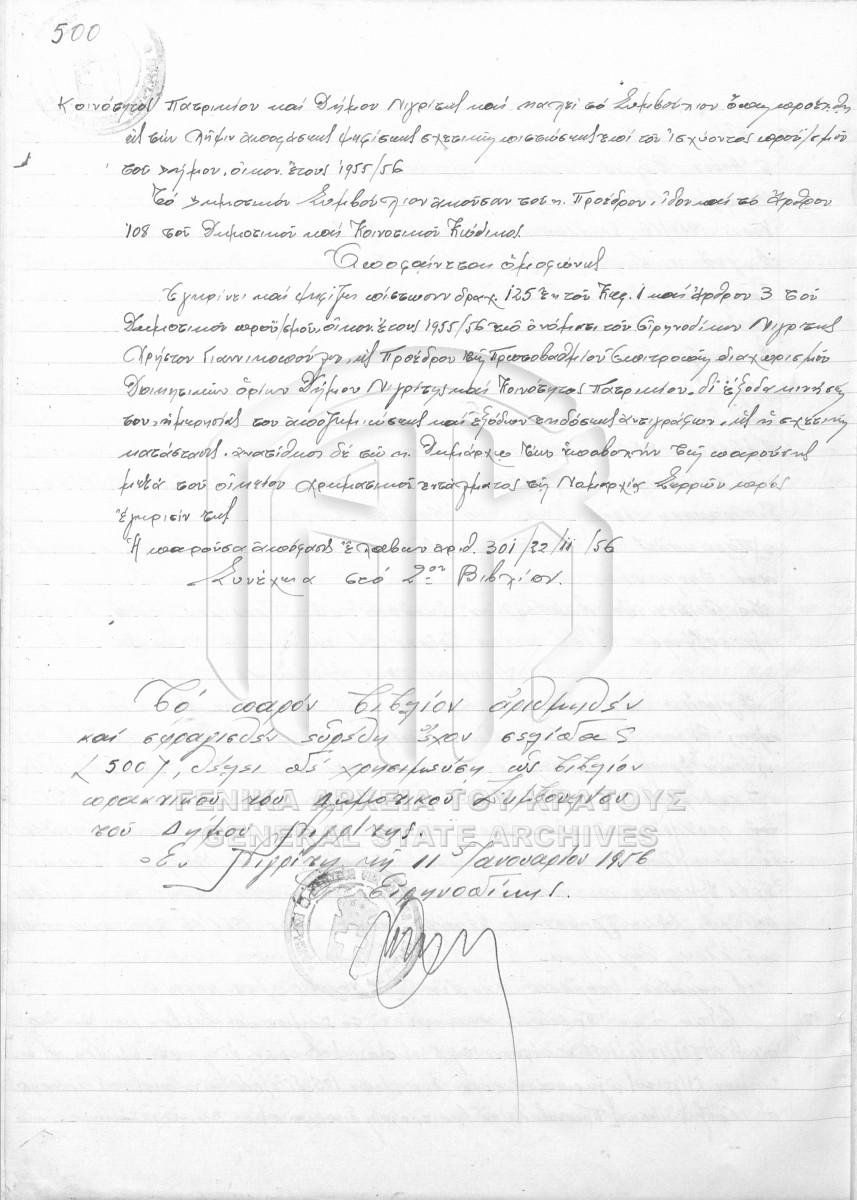 500
Κοινότητος Πατρικίου καί Δήμου Νιγρίτης καί καλεί τό Συμβούλιον ὅπως προέλθῃ
εἰς τήν λῆψιν ἀποφάσεως ψηφίσεως σχετικῆς πιστώσεως ἐπί τοῦ ἰσχύοντος προϋ/σμοῦ
τοῦ Δήμου, οἰκον. ἔτους 1955/56
Τό Δημοτικόν Συμβούλιον ἀκοῦσαν τοῦ κ. Προέδρου, ἰδόν καί τό ἄρθρον
108 τοῦ Δημοτικοῦ καί Κοινοτικοῦ Κώδικος
Ἀποφαίνεται ὁμοφώνως
Ἐγκρίνει καί ψηφίζει πίστωσιν δραχ. 125 ἐκ τοῦ Κεφ. 1 καί ἄρθρον 3 τοῦ
Δημοτικοῦ προϋ/σμοῦ οἰκον. ἔτους 1955/56 ἐπ' ὀνόματι τοῦ Εἰρηνοδίκου Νιγρίτης
Χρήστου Γιαννικοπούλου, ὡς Προέδρου τῆς Πρωτοβαθμίου Ἐπιτροπῆς διαχωρισμοῦ
Διοικητικῶν ὁρίων Δήμου Νιγρίτης καί Κοινότητος Πατρικίου, δι' ἔξοδα κινήσεως
του, ἡμερησίας του ἀποζημιώσεως καί ἐξόδων ἐκδόσεως ἀντιγράφων, ὡς ἡ σχετική
κατάστασις, ἀνατίθησι δέ τῷ κ. Δημάρχῳ τήν ὑποβολήν τῆς παρούσης
μετά τοῦ οἰκείου χρηματικοῦ ἐντάλματος τῇ Νομαρχίᾳ Σερρῶν πρός
ἔγκρισίν της
Ἡ παροῦσα ἀπόφασις ἔλαβεν ἀριθ. 301/22/11/56
Συνέχεια στό 2ον Βιβλίον.
Τό παρόν βιβλίον ἀριθμηθέν
καί σφραγισθέν εὑρέθη ἔχον σελίδας
(500), θέλει δέ χρησιμεύσῃ ὡς βιβλίον
πρακτικοῦ τοῦ Δημοτικοῦ Συμβουλίου
τοῦ Δήμου Νιγρίτης.
Ἐν Νιγρίτῃ τῇ 11 Ἰανουαρίου 1956
Εἰρηνοδίκης.
ΓΕΝΙΚΑ ΑΡΧΕΙΑ ΤΟΥ ΚΡΑΤΟΥΣ
GENERAL STATE ARCHIVES